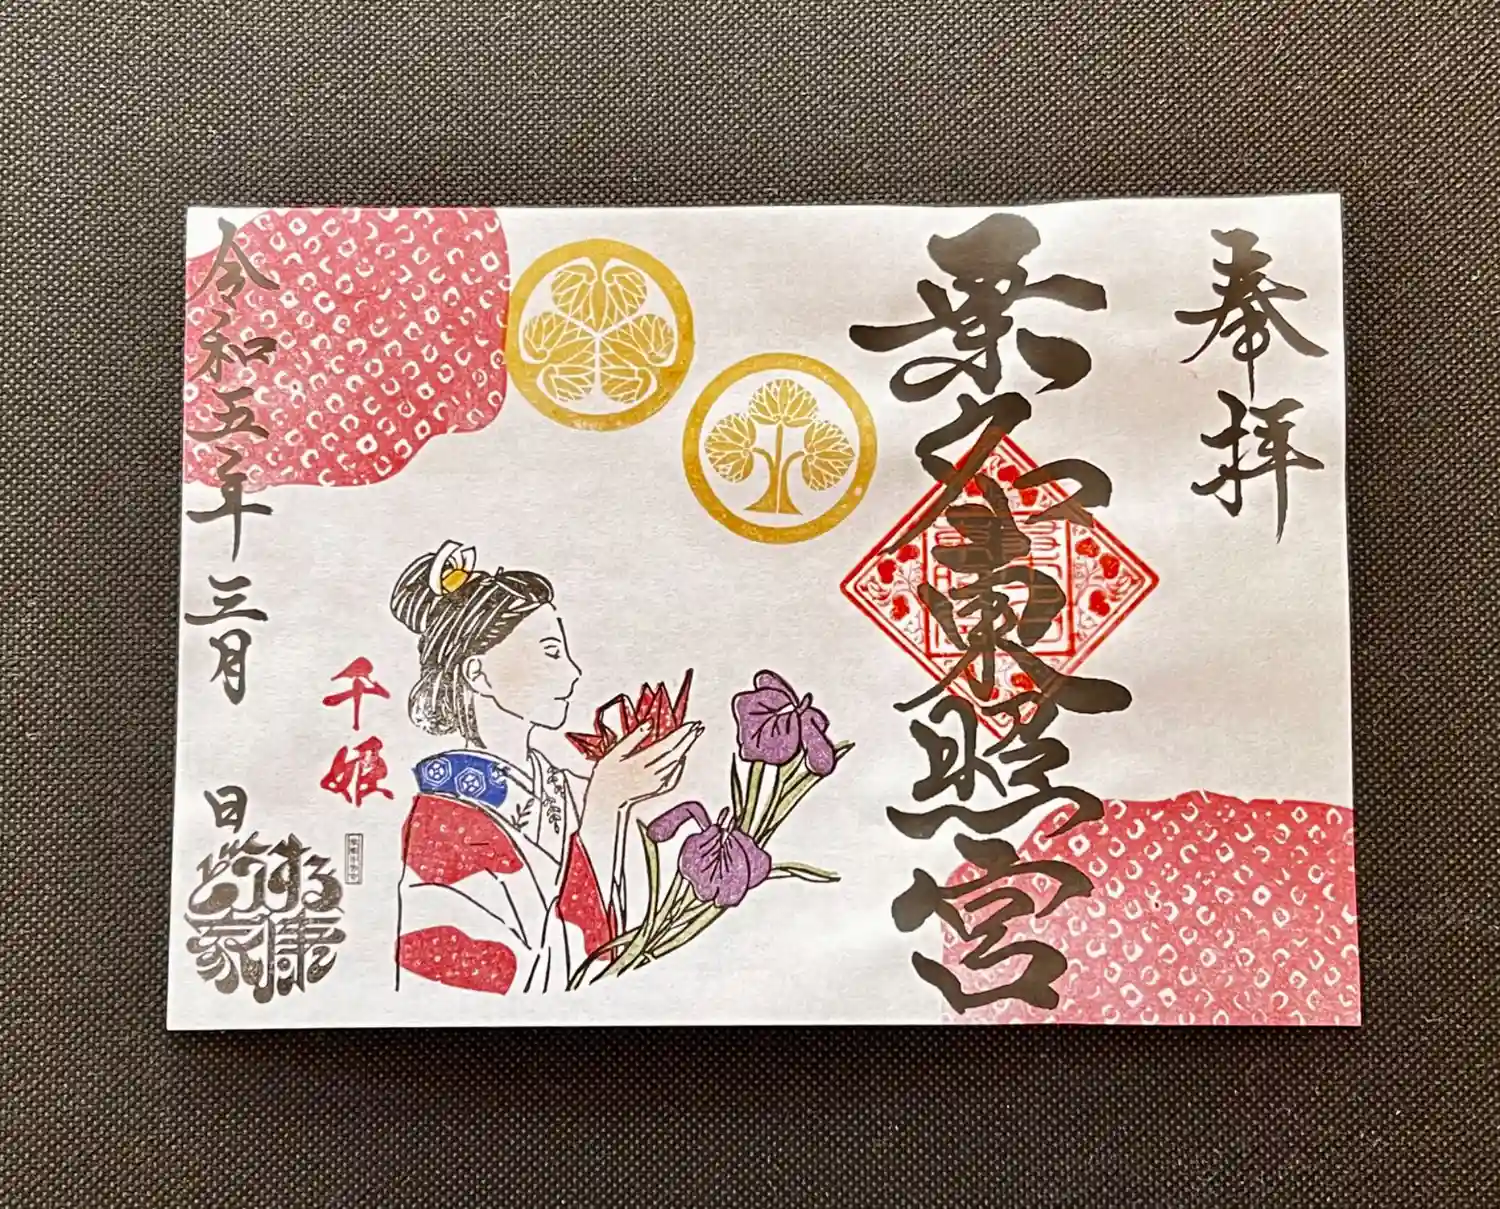 奉拝
桑名東照宮
千姫
令和五年三月 日
どうする家康